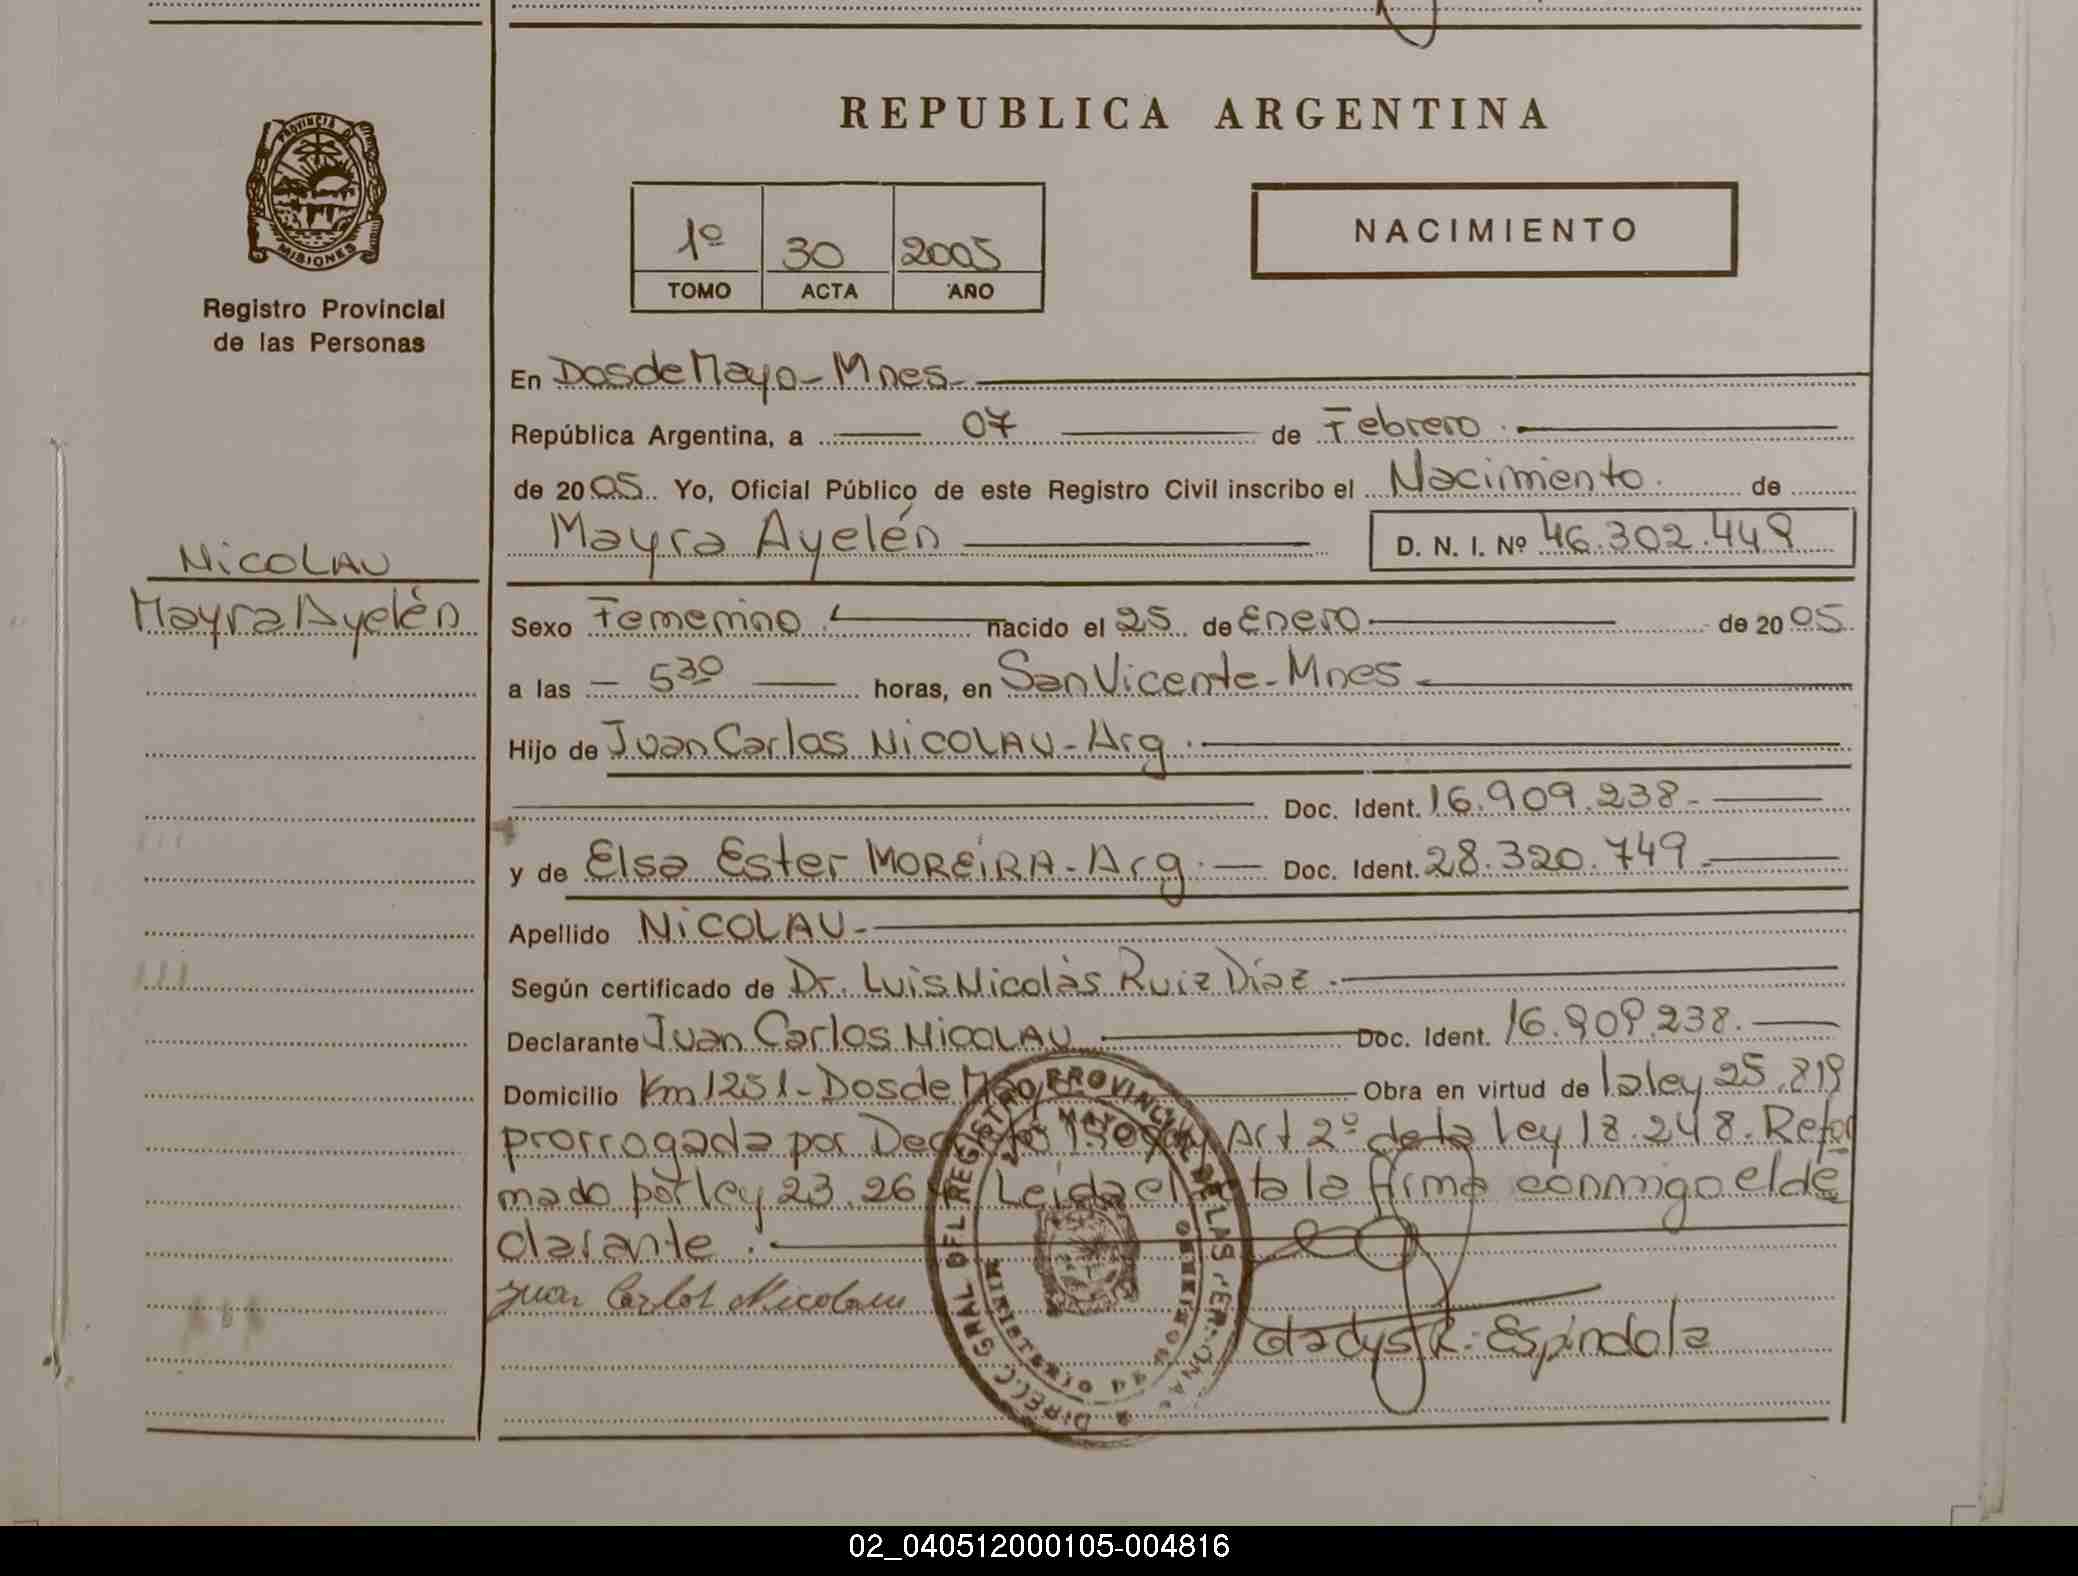 REPUBLICA ARGENTINA
PROVINCIA DE
MISIONES
Registro Provincial
de las Personas
1º 30 2005
TOMO ACTA AÑO
NACIMIENTO
En Dos de Mayo - Mnes.
República Argentina, a 07 de Febrero
de 2005. Yo, Oficial Público de este Registro Civil inscribo el Nacimiento de
Mayra Ayelén D. N. I. Nº 46.302.449
NICOLAU
Mayra Ayelén
Sexo Femenino nacido el 25 de Enero de 2005
a las 5 30 horas, en San Vicente - Mnes
Hijo de Juan Carlos NICOLAU - Arg.
Doc. Ident. 16.909.238.
y de Elsa Ester MOREIRA - Arg. Doc. Ident. 28.320.749
Apellido NICOLAU -
Según certificado de Dr. Luis Nicolás Ruiz Díaz.
Declarante Juan Carlos NICOLAU Doc. Ident. 16.909.238.
Domicilio Km 1251 - Dos de Mayo Obra en virtud de la ley 25.819
prorrogada por Art 2º de la Ley 18.248. Refor
mado por ley 23.26 Leida el la firma conmigo el de
clarante.
Juan Carlos Nicolau
Gladys R. Espindola
DIRECC. GRAL. DEL REGISTRO PROVINCIAL DE LAS PERSONAS
MINISTERIO DE GOBIERNO
02_040512000105-004816